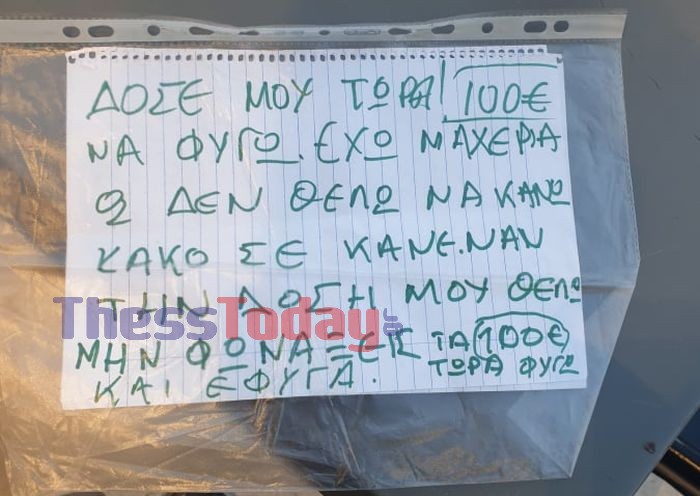 ΔΟΣΕ ΜΟΥ ΤΩΡΑ 100€
ΝΑ ΦΥΓΩ. ΕΧΩ ΜΑΧΕΡΙΑ
ΔΕΝ ΘΕΛΩ ΝΑ ΚΑΝΩ
ΚΑΚΟ ΣΕ ΚΑΝΕ.ΝΑΝ
ΤΗΝ ΔΟΣΗ ΜΟΥ ΘΕΛΩ
ThessToday.gr
ΜΗΝ ΦΩΝΑΞΕΙΣ ΤΑ 100€
ΤΩΡΑ ΦΥΓΩ
ΚΑΙ ΕΦΥΓΑ.